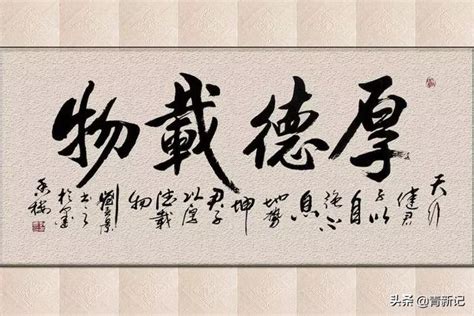 厚德載物
天行
健君
子以
自
強不
息
地勢
坤
君子
以厚
德載
物
头条 @菁新记